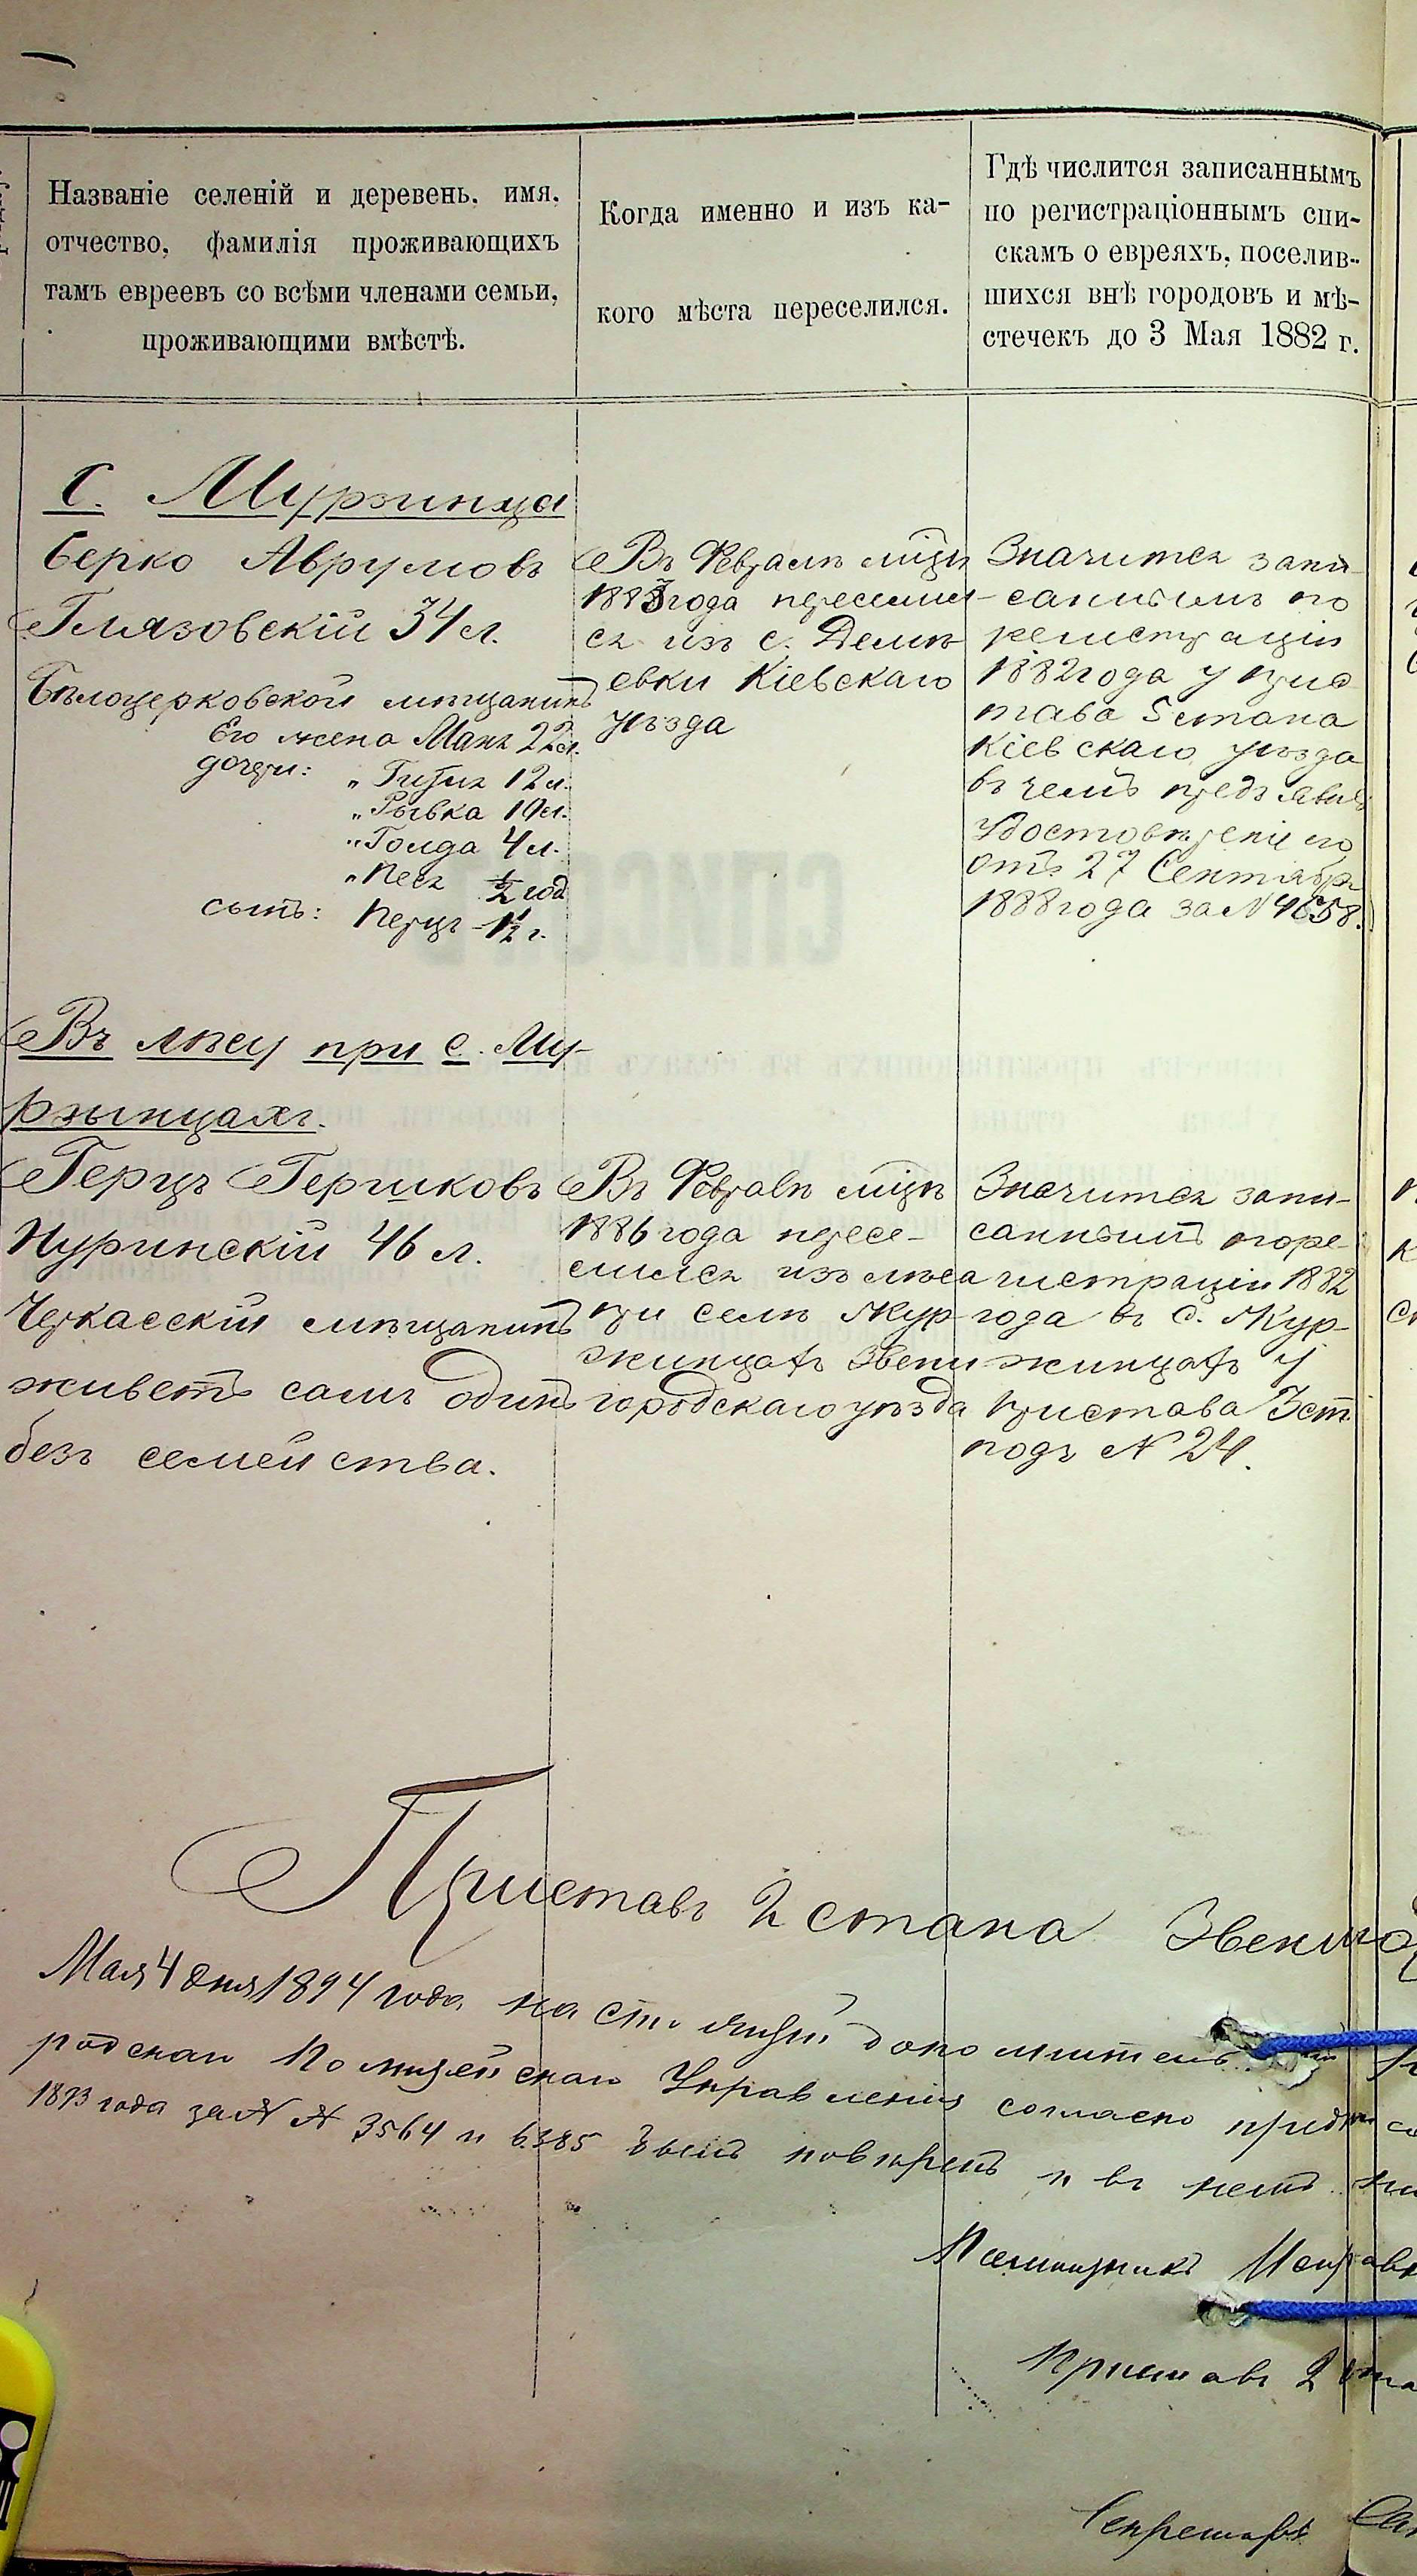 Названіе селеній и деревень, имя,
отчество, фамилія проживающихъ
тамъ евреевъ со всѣми членами семьи,
проживающими вмѣстѣ.
Когда именно и изъ ка-
кого мѣста переселился.
Гдѣ числится записаннымъ
по регистраціоннымъ спи-
скамъ о евреяхъ, поселив-
шихся внѣ городовъ и мѣ-
стечекъ до 3 Мая 1882 г.
С. Мурзинца
Берко Аврумовъ
Глязовскій 34 л.
Бѣлоцерковской мѣщанинъ
Его жена Маня 22 л.
дочери: „ Гитля 12 л.
„ Рывка 10 л.
„ Голда 4 л.
„ Песя ½ год
сынъ: Перец 1½ г.
Въ Февралѣ мѣцѣ
1883 года переселил-
ся изъ с. Демі
евки Кіевскаго
уѣзда
Значится запи-
саннымъ по
регистраціи
1882 года у при
става 5 стана
Кіевскаго уѣзда
въ чемъ предъявил
удостовѣреніе его
отъ 27 Сентября
1888 года за N 4658.
Въ лѣсу при с. Му-
рзынцахъ.
Герцъ Гершковъ
Нуринскій 46 л.
Черкасскій мѣщанинъ
живетъ самъ одинъ
безъ семейства.
Въ Февралѣ мѣцѣ
1886 года пересе-
лился изъ лѣса
при селѣ Жур-
жинцахъ Звени
городскаго уѣзда
Значится запи-
санный по ре-
гистраціи 1882
года въ с. Жур-
жинцахъ у
пристава 3 ст
подъ N 24.
Приставъ 2 стана
Мая 4 дня 1894 года настоящій дополнитель
родскаго Полицейскаго Управленія согласно предпи
1893 года за N N 3564 и 6385 былъ повѣренъ и въ немъ
Помощникъ Исправн
Приставъ 2 ста
Секретарь